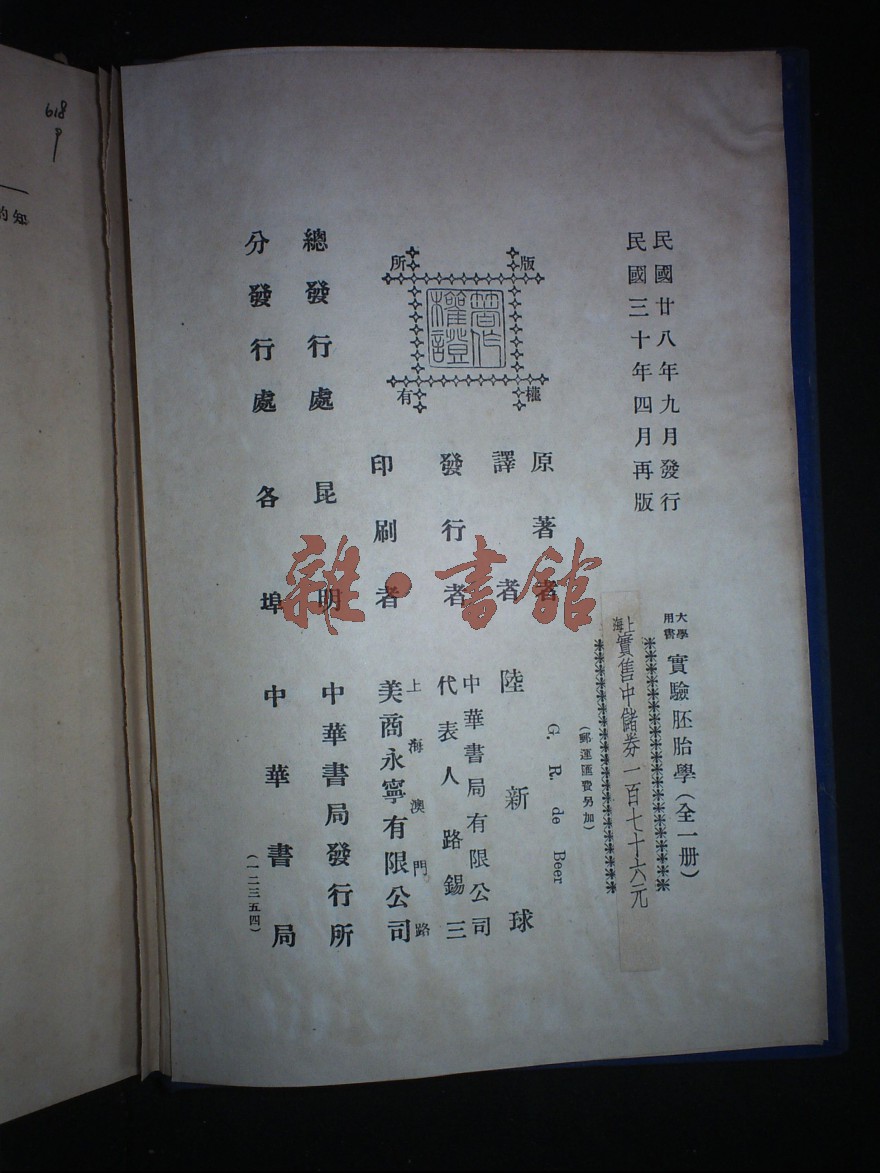 民國廿八年九月發行
民國三十年四月再版
大學用書
實驗胚胎學(全一册)
上海實售中儲券一百七十六元
(郵運匯費另加)
原著者 G. R. de Beer
譯者 陸新球
發行者 中華書局有限公司
代表人 路錫三
印刷者 上海澳門路
美商永寧有限公司
總發行處 昆明 中華書局發行所
分發行處 各埠 中華書局
(一二三五四)
版權所有
著作權證
雜·書館
618
9
的知